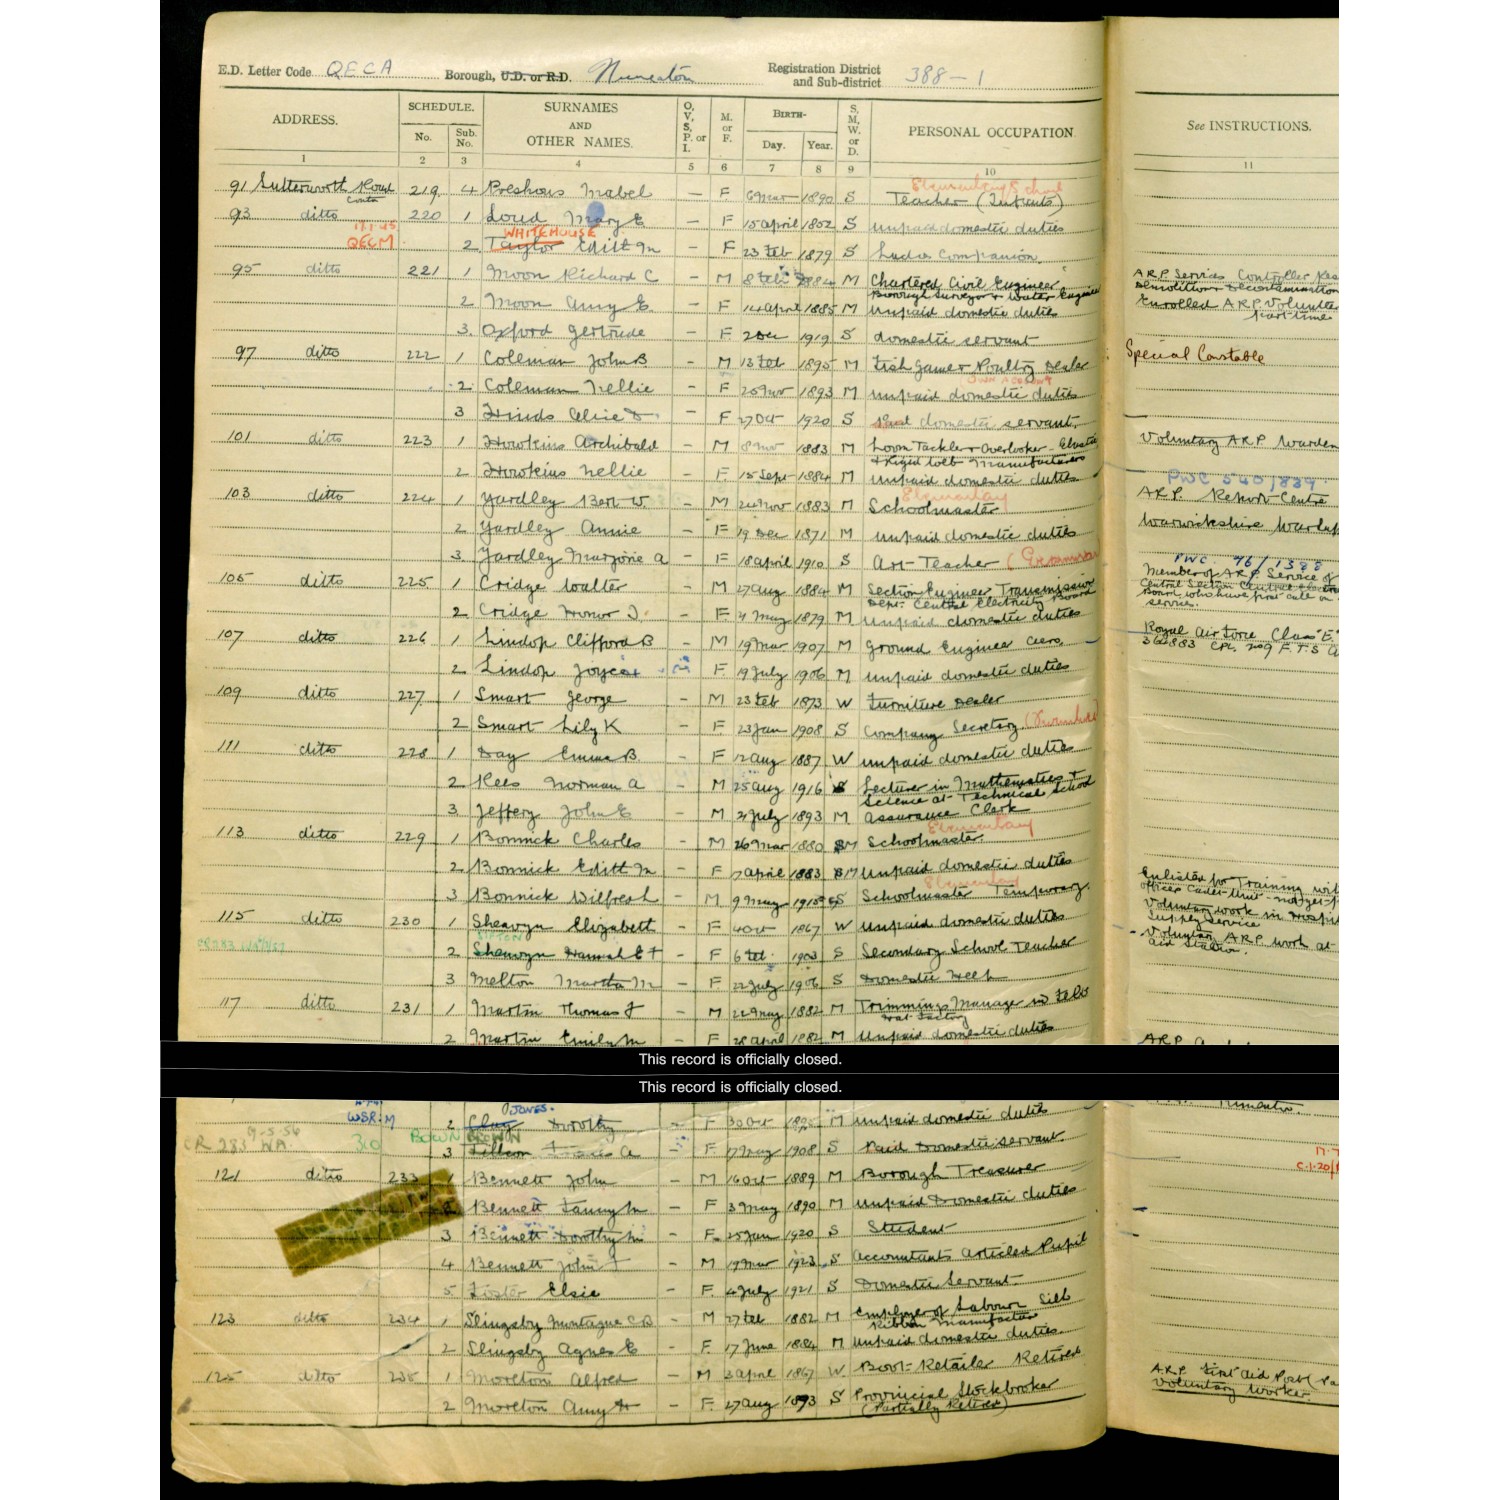 E.D. Letter Code QECA Borough, U.D. or R.D. Nuneaton Registration District and Sub-district 388-1
ADDRESS. SCHEDULE. No. Sub. No. SURNAMES AND OTHER NAMES. O, V, S, P, or I. M. or F. BIRTH- Day. Year. S, M, W, or D. PERSONAL OCCUPATION. See INSTRUCTIONS.
1 2 3 4 5 6 7 8 9 10 11
Elementary School
91 Lutterworth Road contd 219 4 Preshous Mabel - F 6 Mar 1890 S Teacher (Infants)
93 ditto 220 1 Loud Mary E - F 15 April 1852 S unpaid domestic duties
17.1.45 QECM WHITEHOUSE
2 Taylor Edith M - F 23 Feb 1879 S Ladies Companion
95 ditto 221 1 Moon Richard C - M 8 Feb 1884 M Chartered Civil Engineer Borough Surveyor & Water Engineer A.R.P. Services Controller Demolition & Decontamination
2 Moon Amy E. - F 14 April 1885 M unpaid domestic duties Enrolled A.R.P. Volunteer part-time
3. Oxford Gertrude - F 2 Dec 1919 S domestic servant
97 ditto 222 1 Coleman John B - M 13 Feb 1895 M Fish Game & Poultry Dealer OWN ACCOUNT Special Constable
2 Coleman Nellie - F 25 Nov 1893 M unpaid domestic duties
3 Hinds Alice - F 27 Oct 1920 S Paid domestic servant.
101 ditto 223 1 Howkins Archibald - M 8 Nov 1883 M Loom Tackler & Overlooker - Elastic & Rigid Web Manufacturers Voluntary A.R.P. Warden
2 Howkins Nellie - F 15 Sept 1884 M unpaid domestic duties
PWC 540/839
Elementary
103 ditto 224 1 Yardley Bert W. - M 24 Nov 1883 M Schoolmaster A.R.P. Report Centre
2 Yardley Annie - F 19 Dec 1871 M unpaid domestic duties Warwickshire
3 Yardley Marjorie A - F 18 April 1910 S Art-Teacher (Grammar
PWC 46/1398
105 ditto 225 1 Cridge Walter - M 27 Aug 1884 M Section Engineer Transmission Dept. Central Electricity Board Member of A.R.P. Service of Central Section Central Board who have first call on service.
2 Cridge Honor J. - F 4 May 1879 M unpaid domestic duties
107 ditto 226 1 Lindop Clifford B - M 19 Mar 1907 M Ground Engineer Aero. Royal Air Force Class "E" 362883 CPL No 9 F.T.S
2 Lindop Joyce - F 19 July 1906 M unpaid domestic duties
109 ditto 227 1 Smart George - M 23 Feb 1873 W Furniture Dealer
2 Smart Lily K - F 23 Jan 1908 S Company Secretary (Furniture)
111 ditto 228 1 Day Emma B. - F 12 Aug 1887 W unpaid domestic duties
2 Rees Norman A - M 25 Aug 1916 S Lecturer in Mathematics & Science at Technical School
3 Jeffery John E - M 2 July 1893 M Assurance Clerk
Elementary
113 ditto 229 1 Bonnick Charles - M 26 Mar 1880 M Schoolmaster.
2 Bonnick Edith M - F 7 April 1883 M Unpaid domestic duties
Elementary
3 Bonnick Wilfred - M 9 May 1915 S Schoolmaster Temporary. Enlisted for Training with officer Cadet-Unit - not yet
115 ditto 230 1 Sheavyn Elizabeth - F 4 Oct 1867 W unpaid domestic duties Voluntary work in Hospital Supply Service
CR283
2 Sheavyn Hannah E F F 6 Feb. 1903 S Secondary School Teacher Voluntary A.R.P. work at aid Station.
3 Melton Martha M - F 22 July 1906 S Domestic Help
117 ditto 231 1 Martin Thomas F - M 22 May 1882 M Trimmings Manager in Felt Hat Factory
2 Martin Emily M - F 28 April 1882 M Unpaid domestic duties
This record is officially closed.
This record is officially closed.
WSR:M JONES.
2 Clay Dorothy - F 30 Oct 1895 M unpaid domestic duties Nuneaton.
9-5-56 CR 283 WA. 30 BOWN
3 A - F 17 May 1908 S Paid Domestic servant.
121 ditto 233 1 Bennett John - M 16 Oct 1889 M Borough Treasurer
Bennett Fanny M - F 3 May 1890 M unpaid Domestic duties
3 Bennett Dorothy M - F 25 Jan 1920 S Student
4 Bennett John F - M 19 Mar 1923 S Accountants Articled Pupil
5 Elsie - F 4 July 1921 S Domestic Servant.
123 ditto 234 1 Slingsby Montague C B - M 27 Feb 1882 M Employer of Labour Silk Ribbon Manufacturer
2 Slingsby Agnes E - F 17 June 1884 M unpaid domestic duties.
125 ditto 235 1 Moreton Alfred - M 3 April 1867 W. Boot-Retailer Retired
2 Moreton Amy H - F 27 Aug 1893 S Provincial Stockbroker (Partially Retired) A.R.P. First Aid Post Voluntary Worker.